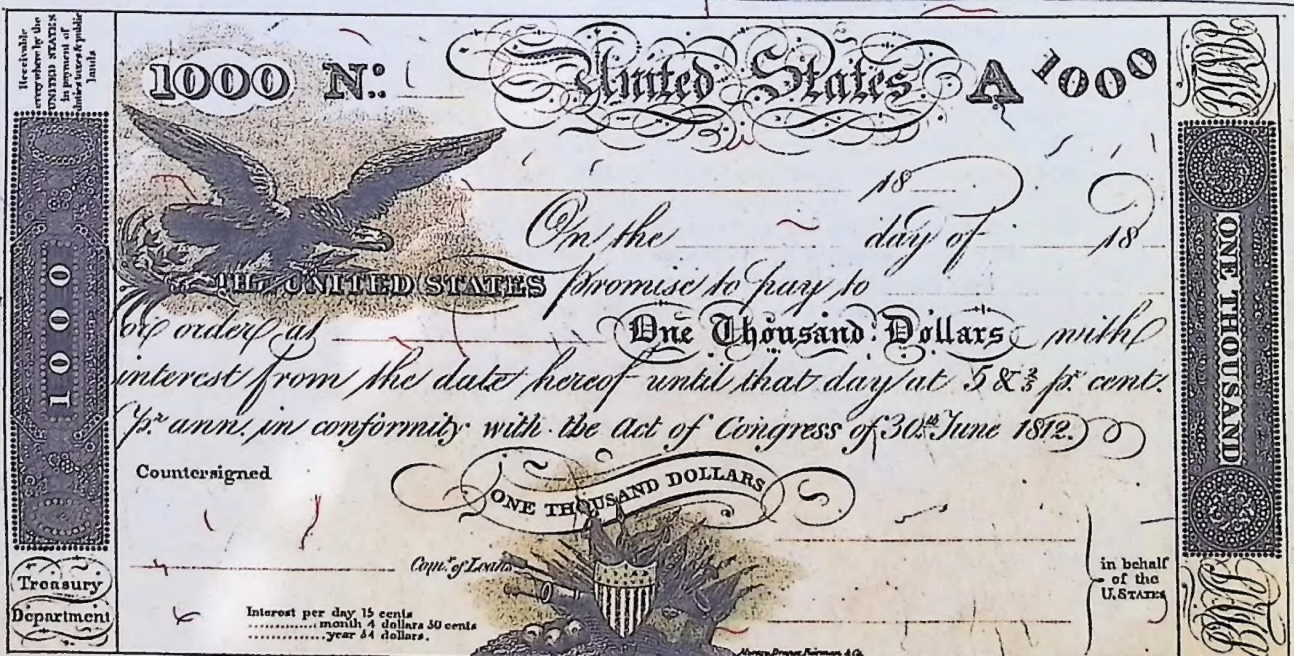 Receivable
every where by the
UNITED STATES
in payment of
duties taxes & public
lands
1000 Nº: United States A 1000
18
On the day of 18
THE UNITED STATES promise to pay to
or order at One Thousand Dollars with
interest from the date hereof until that day at 5 & 2/5 pr. cent.
pr. ann. in conformity with the Act of Congress of 30th June 1812.
Countersigned
ONE THOUSAND DOLLARS
Comr. of Loans
in behalf
of the
U. STATES
Interest per day 15 cents
.............month 4 dollars 50 cents
.............year 54 dollars.
Murray Draper Fairman & Co.
1000
Treasury
Department
ONE THOUSAND